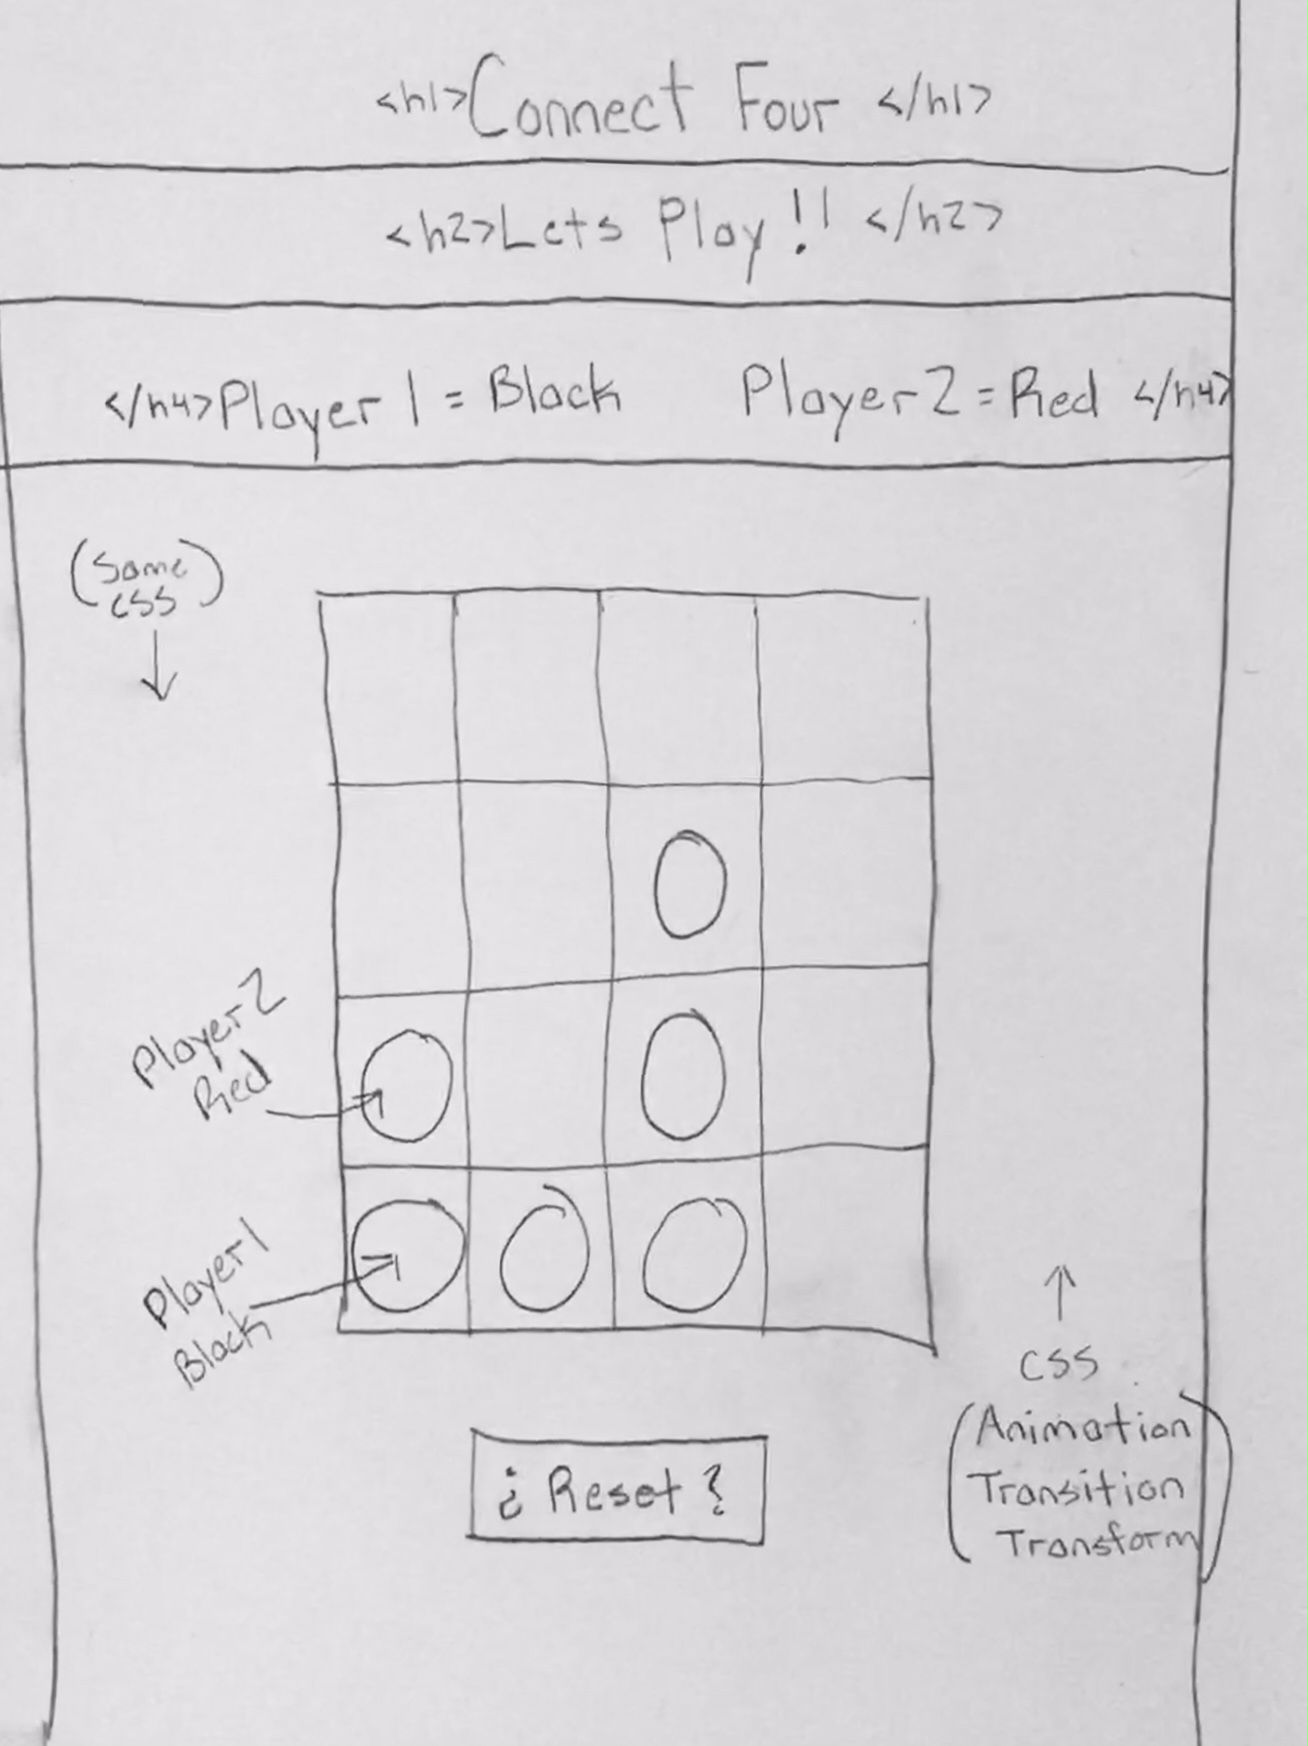 <h1>Connect Four </h1>
<h2>Lets Play!! </h2>
</h4>Player 1 = Black Player 2 = Red </h4>
(Same
CSS)
Player 2
Red
Player 1
Black
CSS
(Animation
Transition
Transform)
¿ Reset ?